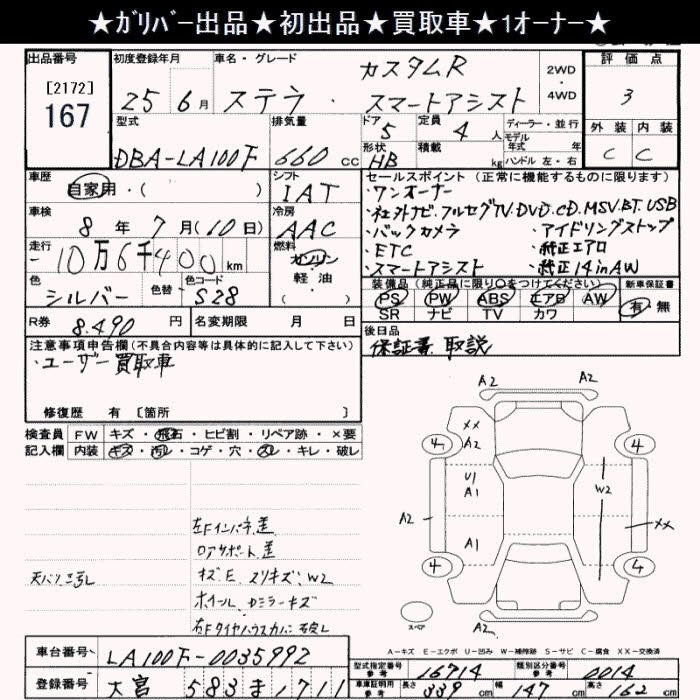 ★ガリバー出品★初出品★買取車★1オーナー★
出品番号
[2172]
167
初度登録年月
25 6月
車名・グレード
カスタムR
ステラ・スマートアシスト
2WD
・
4WD
評価点
3
外装 内装
C C
型式
DBA-LA100F
排気量
660 cc
ドア
5
形状
HB
定員
4 人
積載
kg
ディーラー・並行
モデル
年式 年
ハンドル 左・右
車歴
自家用・( )
シフト
IAT
車検
8 年 7 月(10 日)
冷房
AAC
走行
10万6千400 km
燃料
ガソリン
軽油
( )
色
シルバー
色替
色コード
S28
R券
8.490 円
名変期限 月 日
セールスポイント (正常に機能するものに限ります)
・ワンオーナー
・社外ナビ.フルセグTV.DVD.CD.MSV.BT.USB
・バックカメラ ・アイドリングストップ
・ETC ・純正エアロ
・スマートアシスト ・純正14inAW
装備品(純正品に限り○をつけてください)
新車保証書
PS PW ABS エアB AW
SR ナビ TV カワ
有・無
後日品
保証書 取説
注意事項申告欄(不具合内容等は具体的に記入して下さい)
・ユーザー買取車
修復歴 有 [箇所 ]
検査員
記入欄
FW キズ・飛石・ヒビ割・リペア跡・×要
内装 キズ・汚レ・コゲ・穴・スレ・キレ・破レ
左Fインパネ差
ロアサポート差
キズ.E.スリキズ.W2
ホイール.ドミラーキズ
左Fタイヤハウスカバー破レ
A2 A2
XX
A2
4 4
U1
A1
W2
A2
XX
A1
4 4
A2
スペア
A-キズ E-エクボ U-凹み W-補修跡 S-サビ C-腐食 XX-交換済
車台番号
LA100F-0035992
登録番号
大宮 583 ま 1711
型式指定番号
参考
16714
類別区分番号
参考
0014
車庫証明用
参考
長さ
339 cm
幅
147 cm
高さ
162 cm